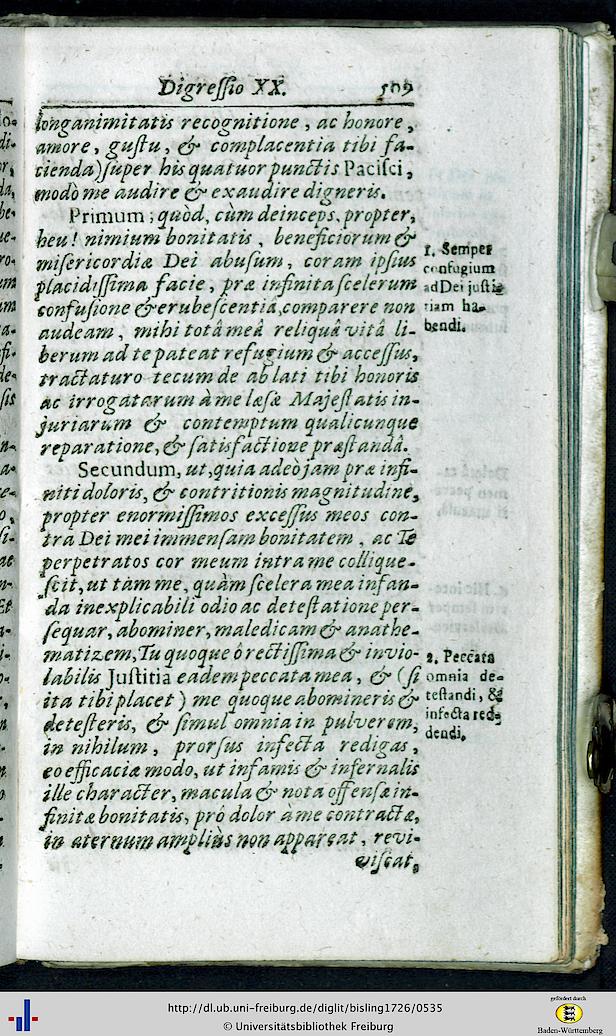 Digressio XX. 509
longanimitatis recognitione, ac honore,
amore, gustu, & complacentia tibi fa-
cienda) super his quatuor punctis Pacisci,
modò me audire & exaudire digneris.
Primum; quòd, cùm deinceps, propter,
heu! nimium bonitatis, beneficiorum &
misericordiæ Dei abusum, coram ipsius
placidissima facie, præ infinita scelerum
confusione & erubescentiâ, comparere non
audeam, mihi totâ meâ reliquâ vitâ li-
berum ad te pateat refugium & accessus,
tractaturo tecum de ablati tibi honoris
ac irrogatarum à me læsæ Majestatis in-
juriarum & contemptum qualicunque
reparatione, & satisfactione præstandâ.
1. Semper
confugium
ad Dei justi-
tiam ha-
bendi.
Secundum, ut, quia adeò jam præ infi-
niti doloris, & contritionis magnitudine,
propter enormissimos excessus meos con-
tra Dei mei immensam bonitatem, ac Te
perpetratos cor meum intra me collique-
scit, ut tàm me, quàm scelera mea infan-
da inexplicabili odio ac detestatione per-
sequar, abominer, maledicam & anathe-
matizem, Tu quoque ô rectissima & invio-
labilis Justitia eadem peccata mea, & (si
ita tibi placet) me quoque abomineris &
detesteris, & simul omnia in pulverem,
in nihilum, prorsus infecta redigas,
eo efficaciæ modo, ut infamis & infernalis
ille character, macula & nota offensæ in-
finitæ bonitatis, prô dolor à me contractæ,
in æternum ampliùs non appareat, revi-
viscat,
2. Peccata
omnia de-
testandi, &
infecta red-
dendi.
http://dl.ub.uni-freiburg.de/diglit/bisling1726/0535
© Universitätsbibliothek Freiburg
gefördert durch
Baden-Württemberg